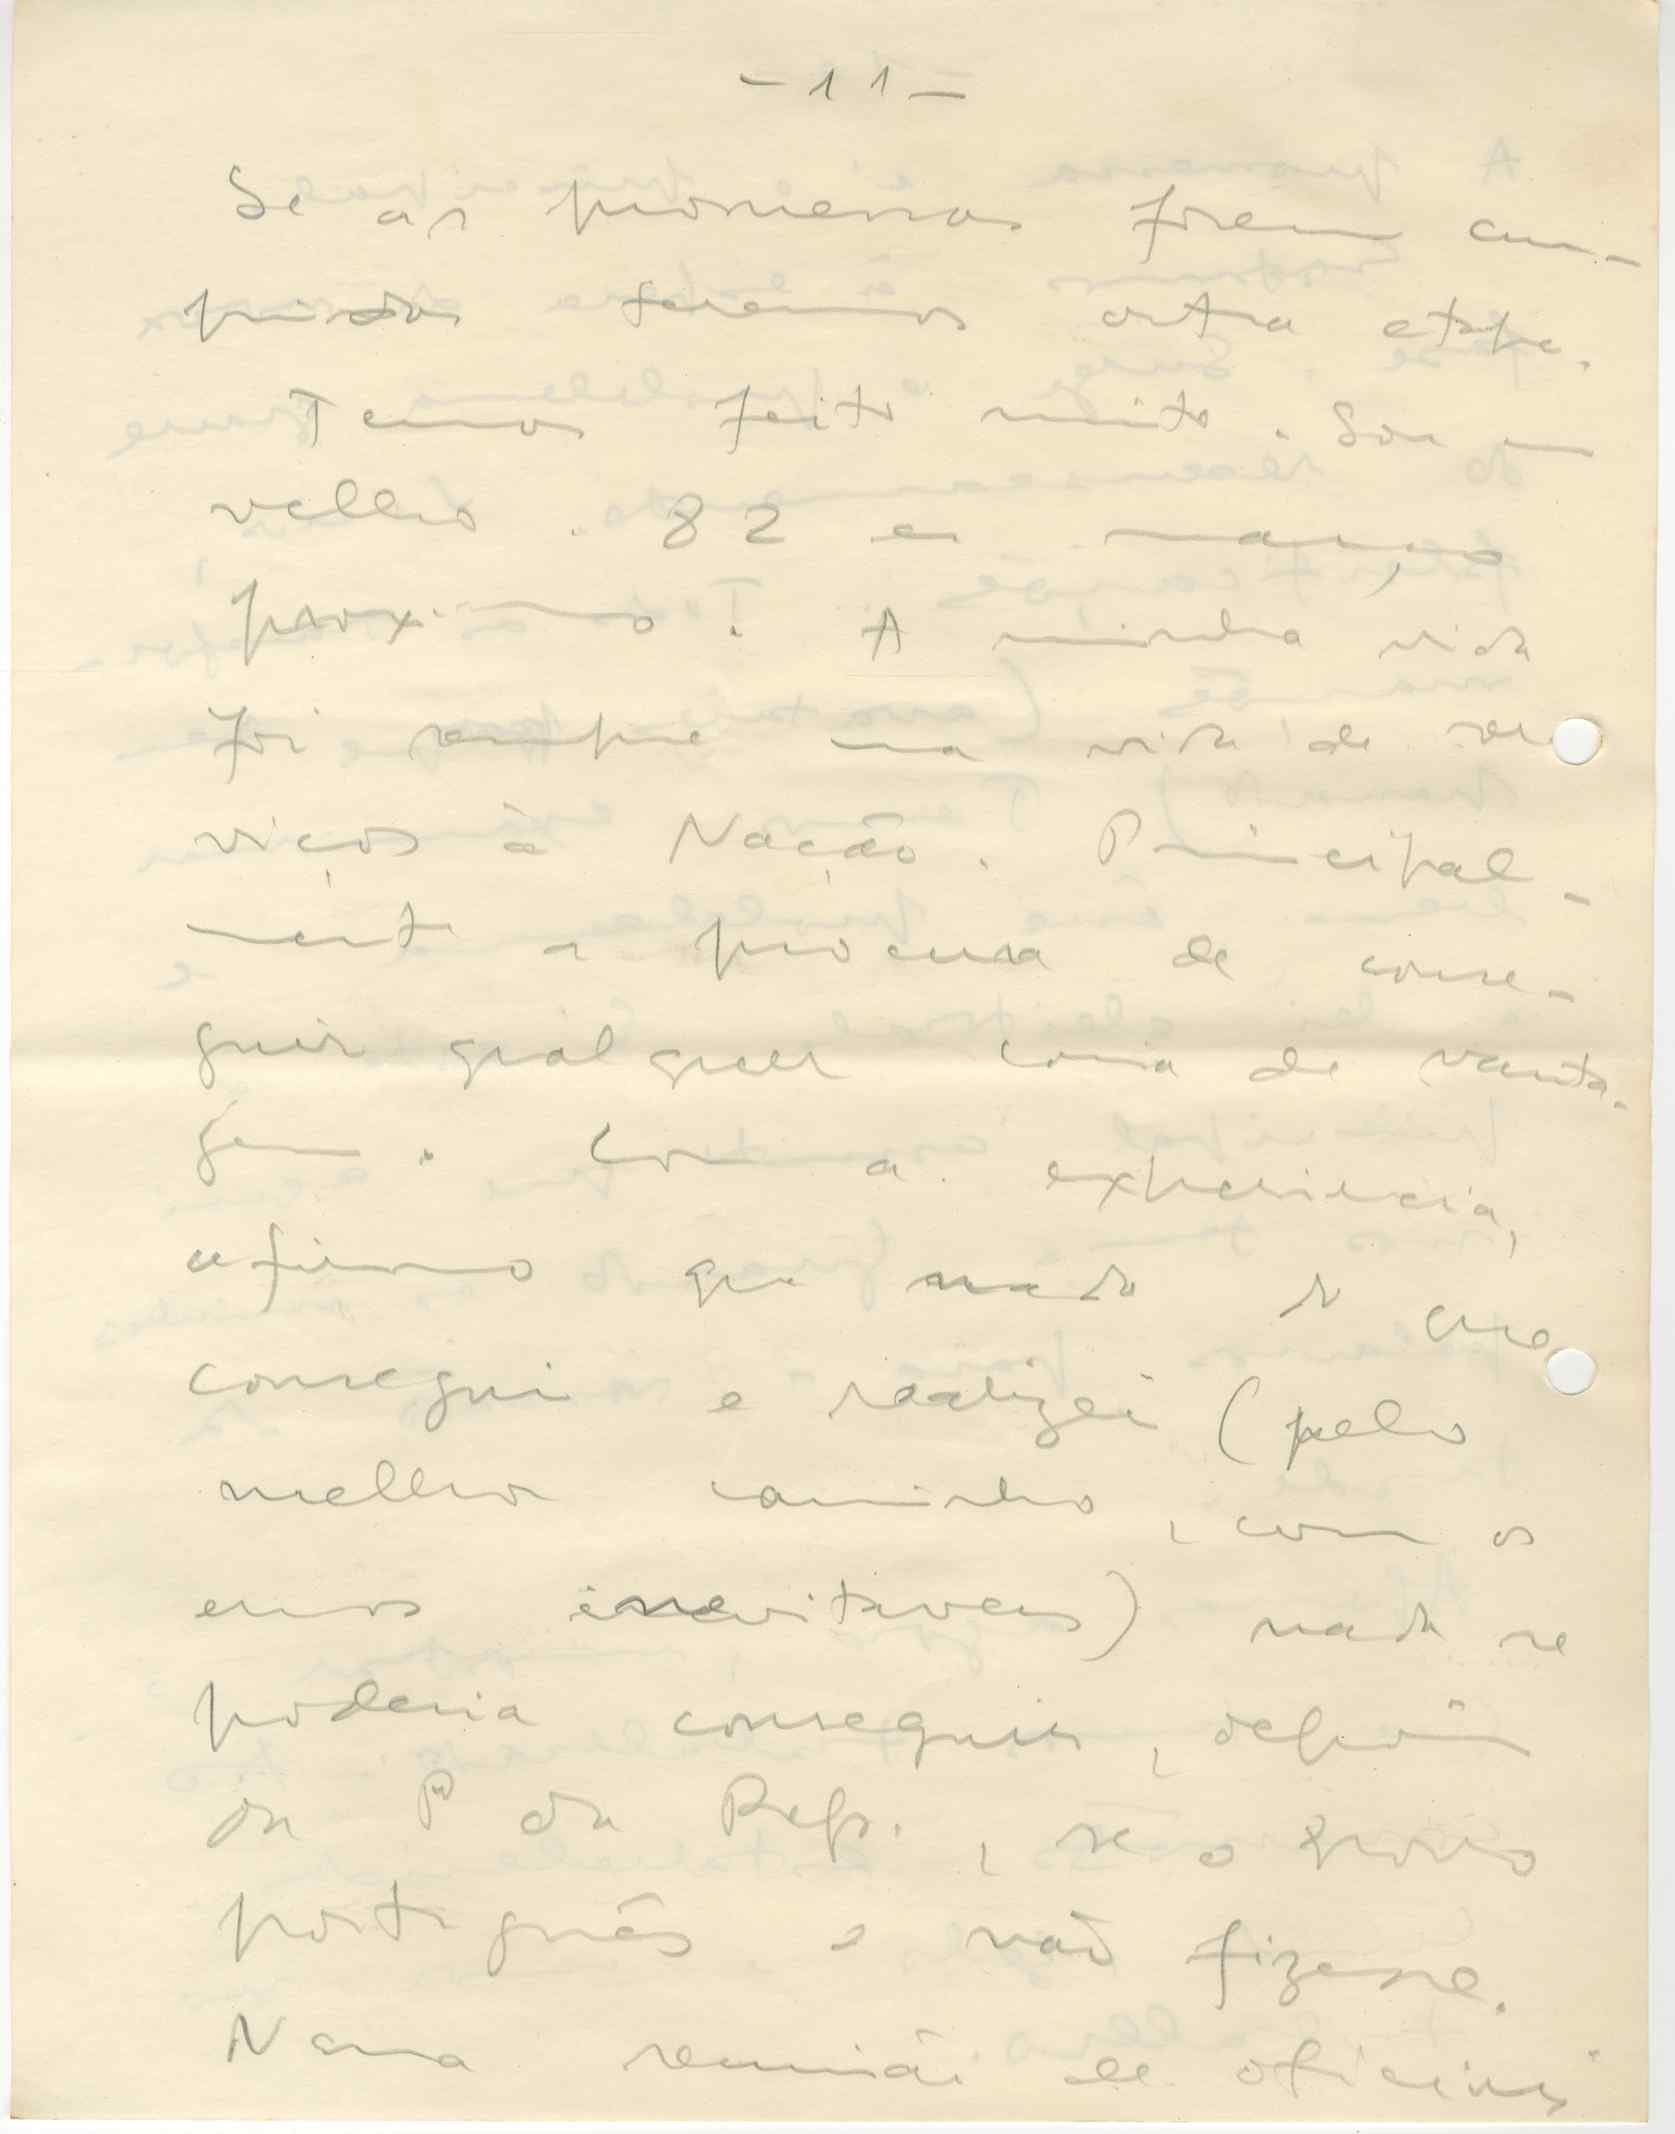 - 11 -
Se as promessas forem cum-
pridas teremos outra etape.
Temos feito muito. Sou um
velho. 82 em março
proximo. A minha vida
foi sempre uma vida de ser
viços à Nação. Principal-
mente a procura de conse-
guir qualquer coisa de vanta-
gem. Com a experiencia,
afirmo que nada do que
consegui e realizei (pelo
melhor caminho, com os
erros inevitaveis) nada se
poderia conseguir, depois
da P da Rep., se o povo
português o não fizesse.
Numa reunião de oficiais